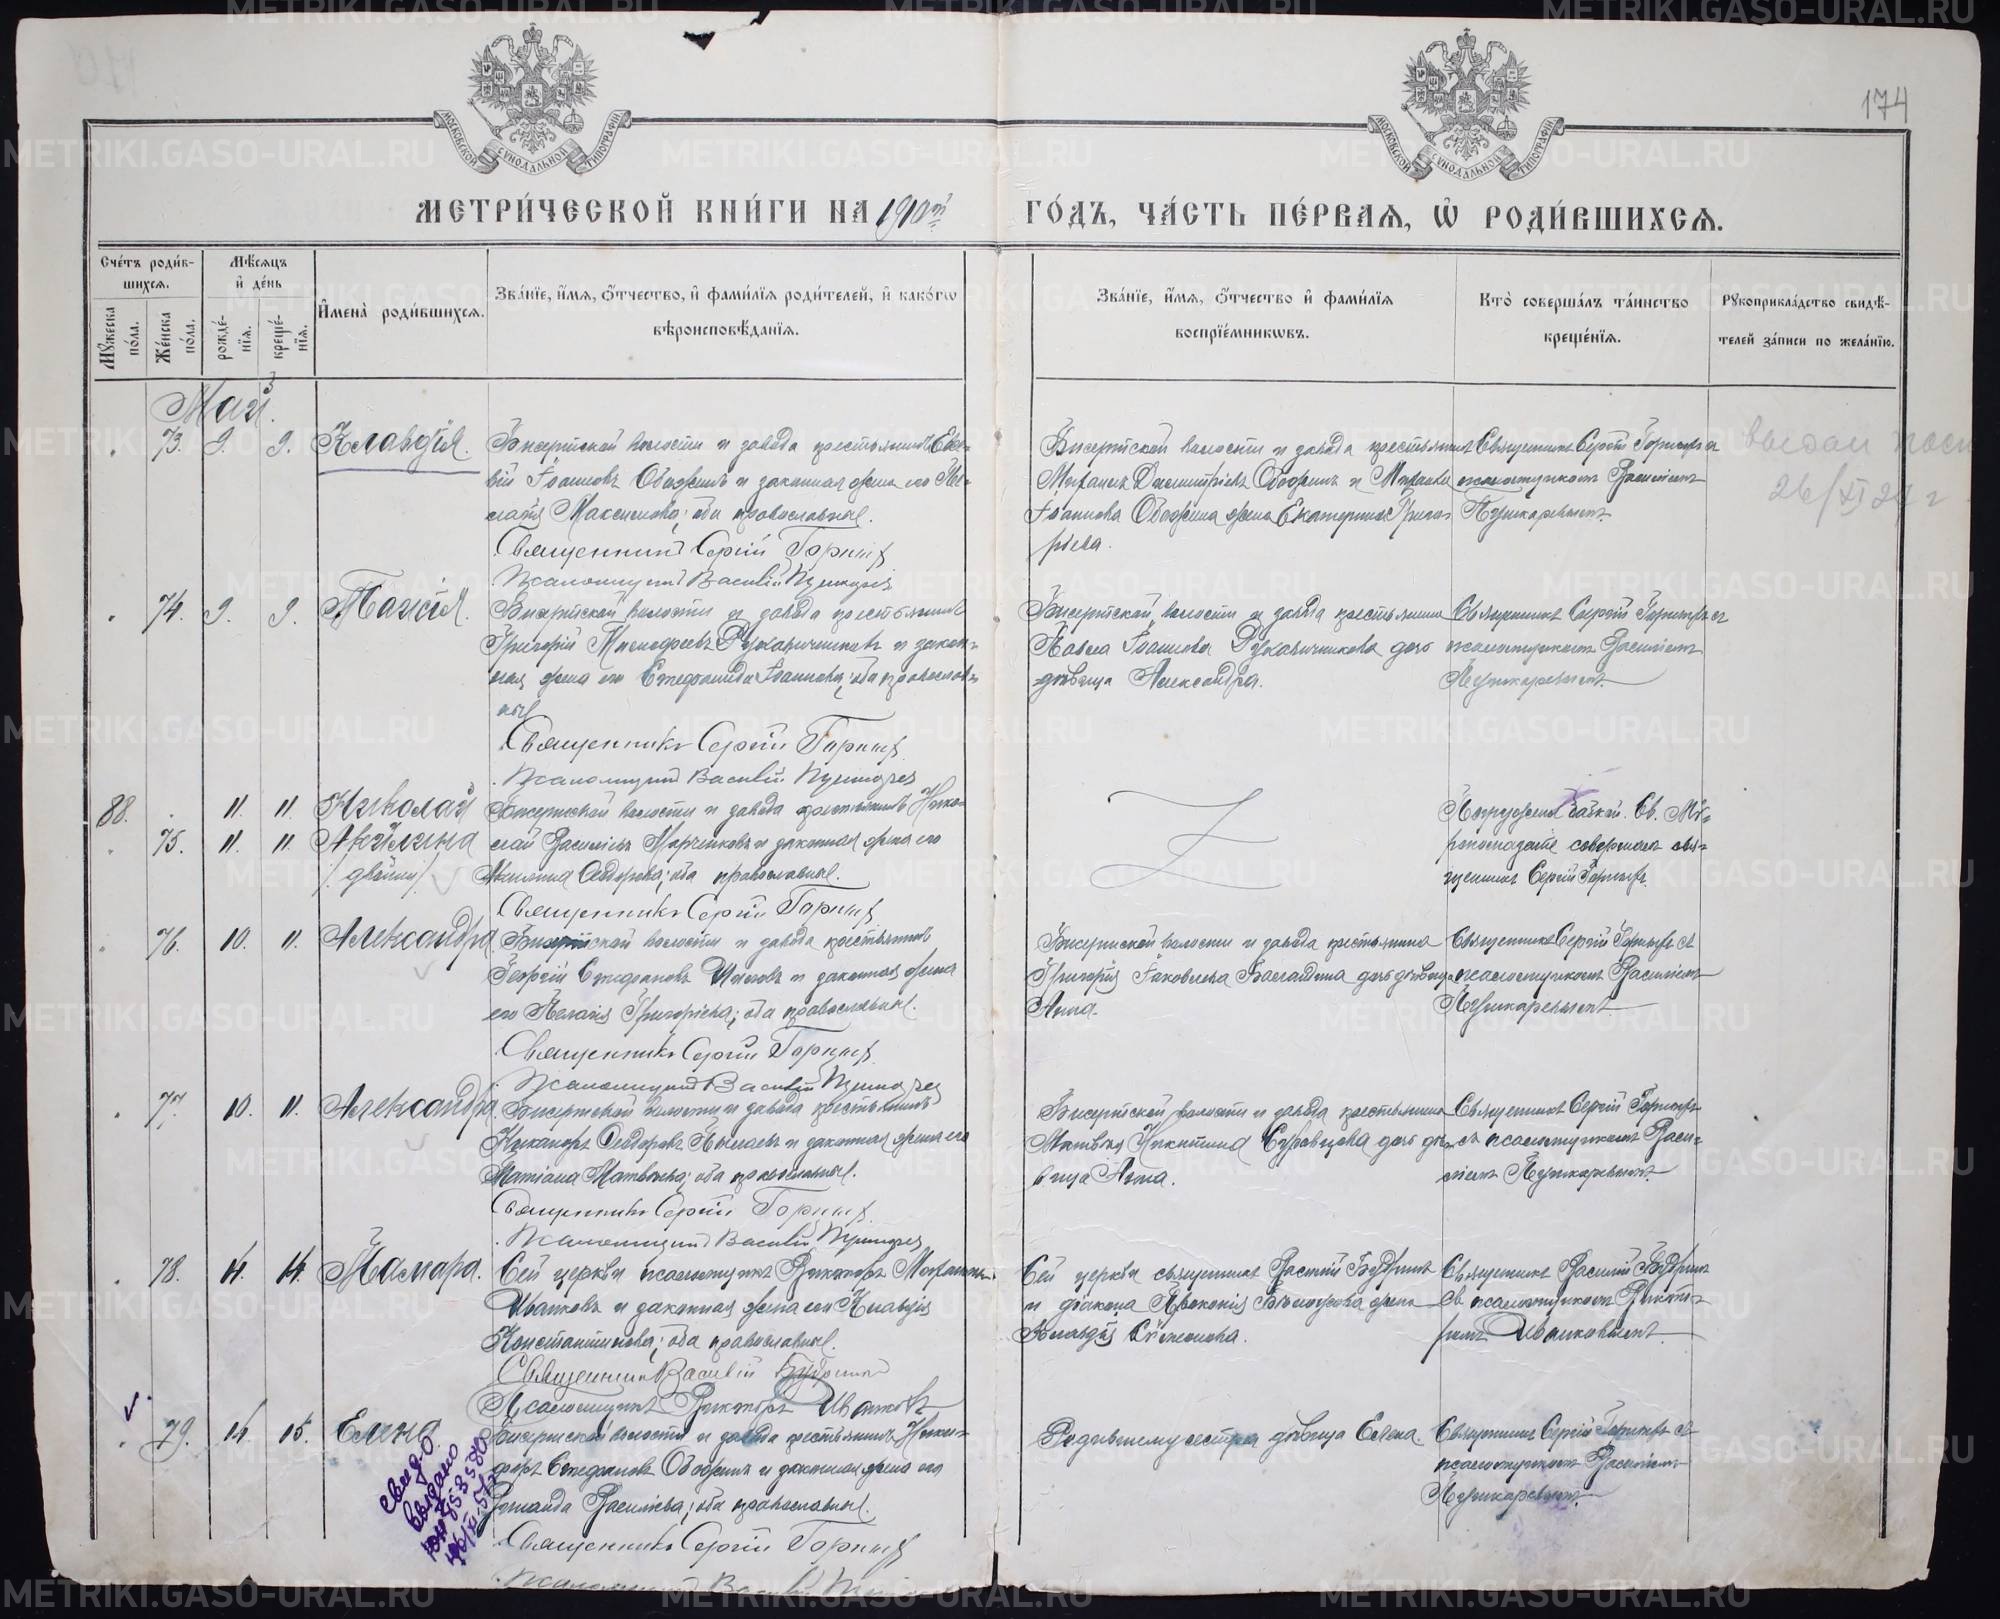 174
МОСКОВСКОЙ СѴНОДАЛЬНОЙ ТИПОГРАФІИ
МОСКОВСКОЙ СѴНОДАЛЬНОЙ ТИПОГРАФІИ
МЕТРИ́ЧЕСКОЙ КНИ́ГИ НА 1910й ГО́ДЪ, ЧА́СТЬ ПЕ́РВАЯ, Ѡ҆ РОДИ́ВШИХСЯ.
Сче́тъ роди́в-
шихся.
Мꙋ́жеска по́ла.
Же́нска по́ла.
Мѣ́сяцъ
и҆ де́нь
рожде́-
нїя.
креще́-
нїя.
И҆мена̀ роди́вшихся.
Зва́нїе, и҆́мя, ѻ҆́тчество, и҆ фами́лїя роди́телей, и҆ како́гѡ
вѣроисповѣ́данїя.
Зва́нїе, и҆́мя, ѻ҆́тчество и҆ фами́лїя
воспрїе́мникѡвъ.
Кто̀ соверша́лъ та́инство
креще́нїя.
Рꙋкоприкла́дство свидѣ́-
телей за́писи по жела́нїю.
Май.
73. 9. 9. Клавдія.
Бисертской волости и завода крестьянинъ
Іоанновъ Ободинъ и законная жена его Пе-
лагія Максимова; оба православные.
Священникъ Сергій Горныхъ
Псаломщикъ Василій Пушкарев
Бисертской волости и завода крестьянинъ
Михаилъ Димитріевъ Ободинъ и Михаила
Іоаннова Ободина жена Екатерина Григо-
рьева.
Священникъ Сергій Горныхъ съ
псаломщикомъ Василіемъ
Пушкаревымъ.
26/XI 27 г
74. 9. 9. Таисія.
Бисертской волости и завода крестьянинъ
Григорій Рукавичниковъ и закон-
ная жена его Стефанида Іоаннова; оба православ-
ные
Священникъ Сергій Горныхъ
Псаломщикъ Василій Пушкарев
Бисертской волости и завода крестьянина
Павла Іоаннова Рукавичникова дочь
дѣвица Александра.
Священникъ Сергій Горныхъ съ
псаломщикомъ Василіемъ
Пушкаревымъ.
88. 11. 11. Николай
75. 11. 11. Акилина
/двойни/
Бисертской волости и завода крестьянинъ Нико-
лай Василіевъ и законная жена его
Ѳеодорова; оба православные.
Священникъ Сергій Горныхъ
Погружены бабкой. Св. Мѵ-
ропомазаніе совершалъ свя-
щенникъ Сергій Горныхъ.
76. 10. 11. Александра
Бисертской волости и завода крестьянинъ
Георгій Стефановъ и законная жена
его Пелагія Григоріева; оба православные.
Священникъ Сергій Горныхъ
Псаломщикъ Василій Пушкарев
Бисертской волости и завода крестьянина
Григорія Іаковлева дочь дѣвица
Анна.
Священникъ Сергій Горныхъ съ
псаломщикомъ Василіемъ
Пушкаревымъ
77. 10. 11. Александра
Бисертской волости и завода крестьянинъ
Никаноръ Ѳеодоровъ и законная жена его
Матвѣева; оба православные.
Священникъ Сергій Горныхъ
Псаломщикъ Василій Пушкарев
Бисертской волости и завода крестьянина
Матвѣя Никитина дочь дѣ-
вица Анна.
Священникъ Сергій Горныхъ
съ псаломщикомъ Васи-
ліемъ Пушкаревымъ.
78. 14. 14. Тамара.
Сей церкви псаломщикъ Викторъ
Иванковъ и законная жена его Клавдія
Константинова; оба православные.
Священникъ Василій Будринъ
Псаломщикъ Викторъ Иванковъ
Сей церкви священникъ Василій Будринъ
и діакона жена
Клавдія Сѵмеонова.
Священникъ Василій Будринъ
съ псаломщикомъ Викто-
ромъ Иванковымъ.
79. 14. 15. Елена.
Бисертской волости и завода крестьянинъ Ники-
форъ Стефановъ Ободинъ и законная жена его
Василіева; оба православные.
Священникъ Сергій Горныхъ
Псаломщикъ Василій
Родившему сестра дѣвица Елена
Священникъ Сергій Горныхъ съ
псаломщикомъ Василіемъ
Пушкаревымъ.
выдано
METRIKI.GASO-URAL.RU